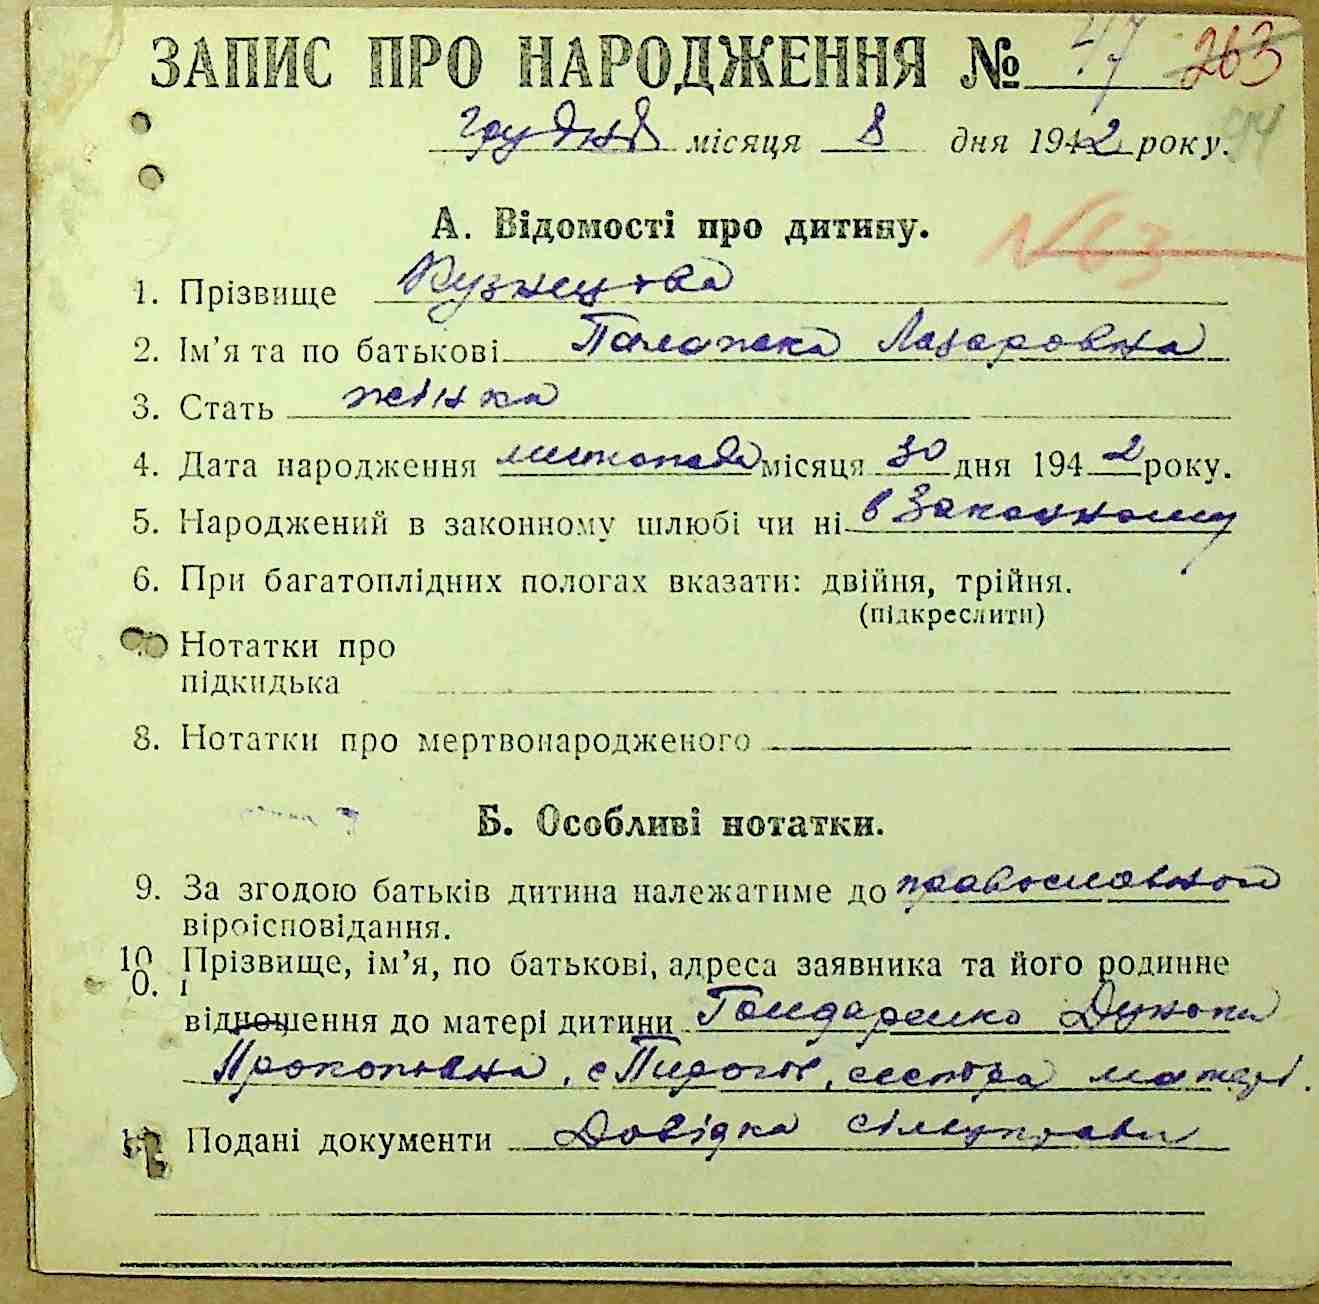 ЗАПИС ПРО НАРОДЖЕННЯ № 47 263
грудня місяця 8 дня 1942 року.
А. Відомості про дитину.
N63
1. Прізвище Кузнецова
2. Ім'я та по батькові Палажка Лазаровна
3. Стать жінка
4. Дата народження листопада місяця 30 дня 1942 року.
5. Народжений в законному шлюбі чи ні в законному
6. При багатоплідних пологах вказати: двійня, трійня.
(підкреслити)
Нотатки про
підкидька
8. Нотатки про мертвонародженого
Б. Особливі нотатки.
9. За згодою батьків дитина належатиме до православного
віроісповідання.
10. Прізвище, ім'я, по батькові, адреса заявника та його родинне
відношення до матері дитини
Прокоповна, с Пирогів, сестра матері.
Подані документи Довідка сільуправи